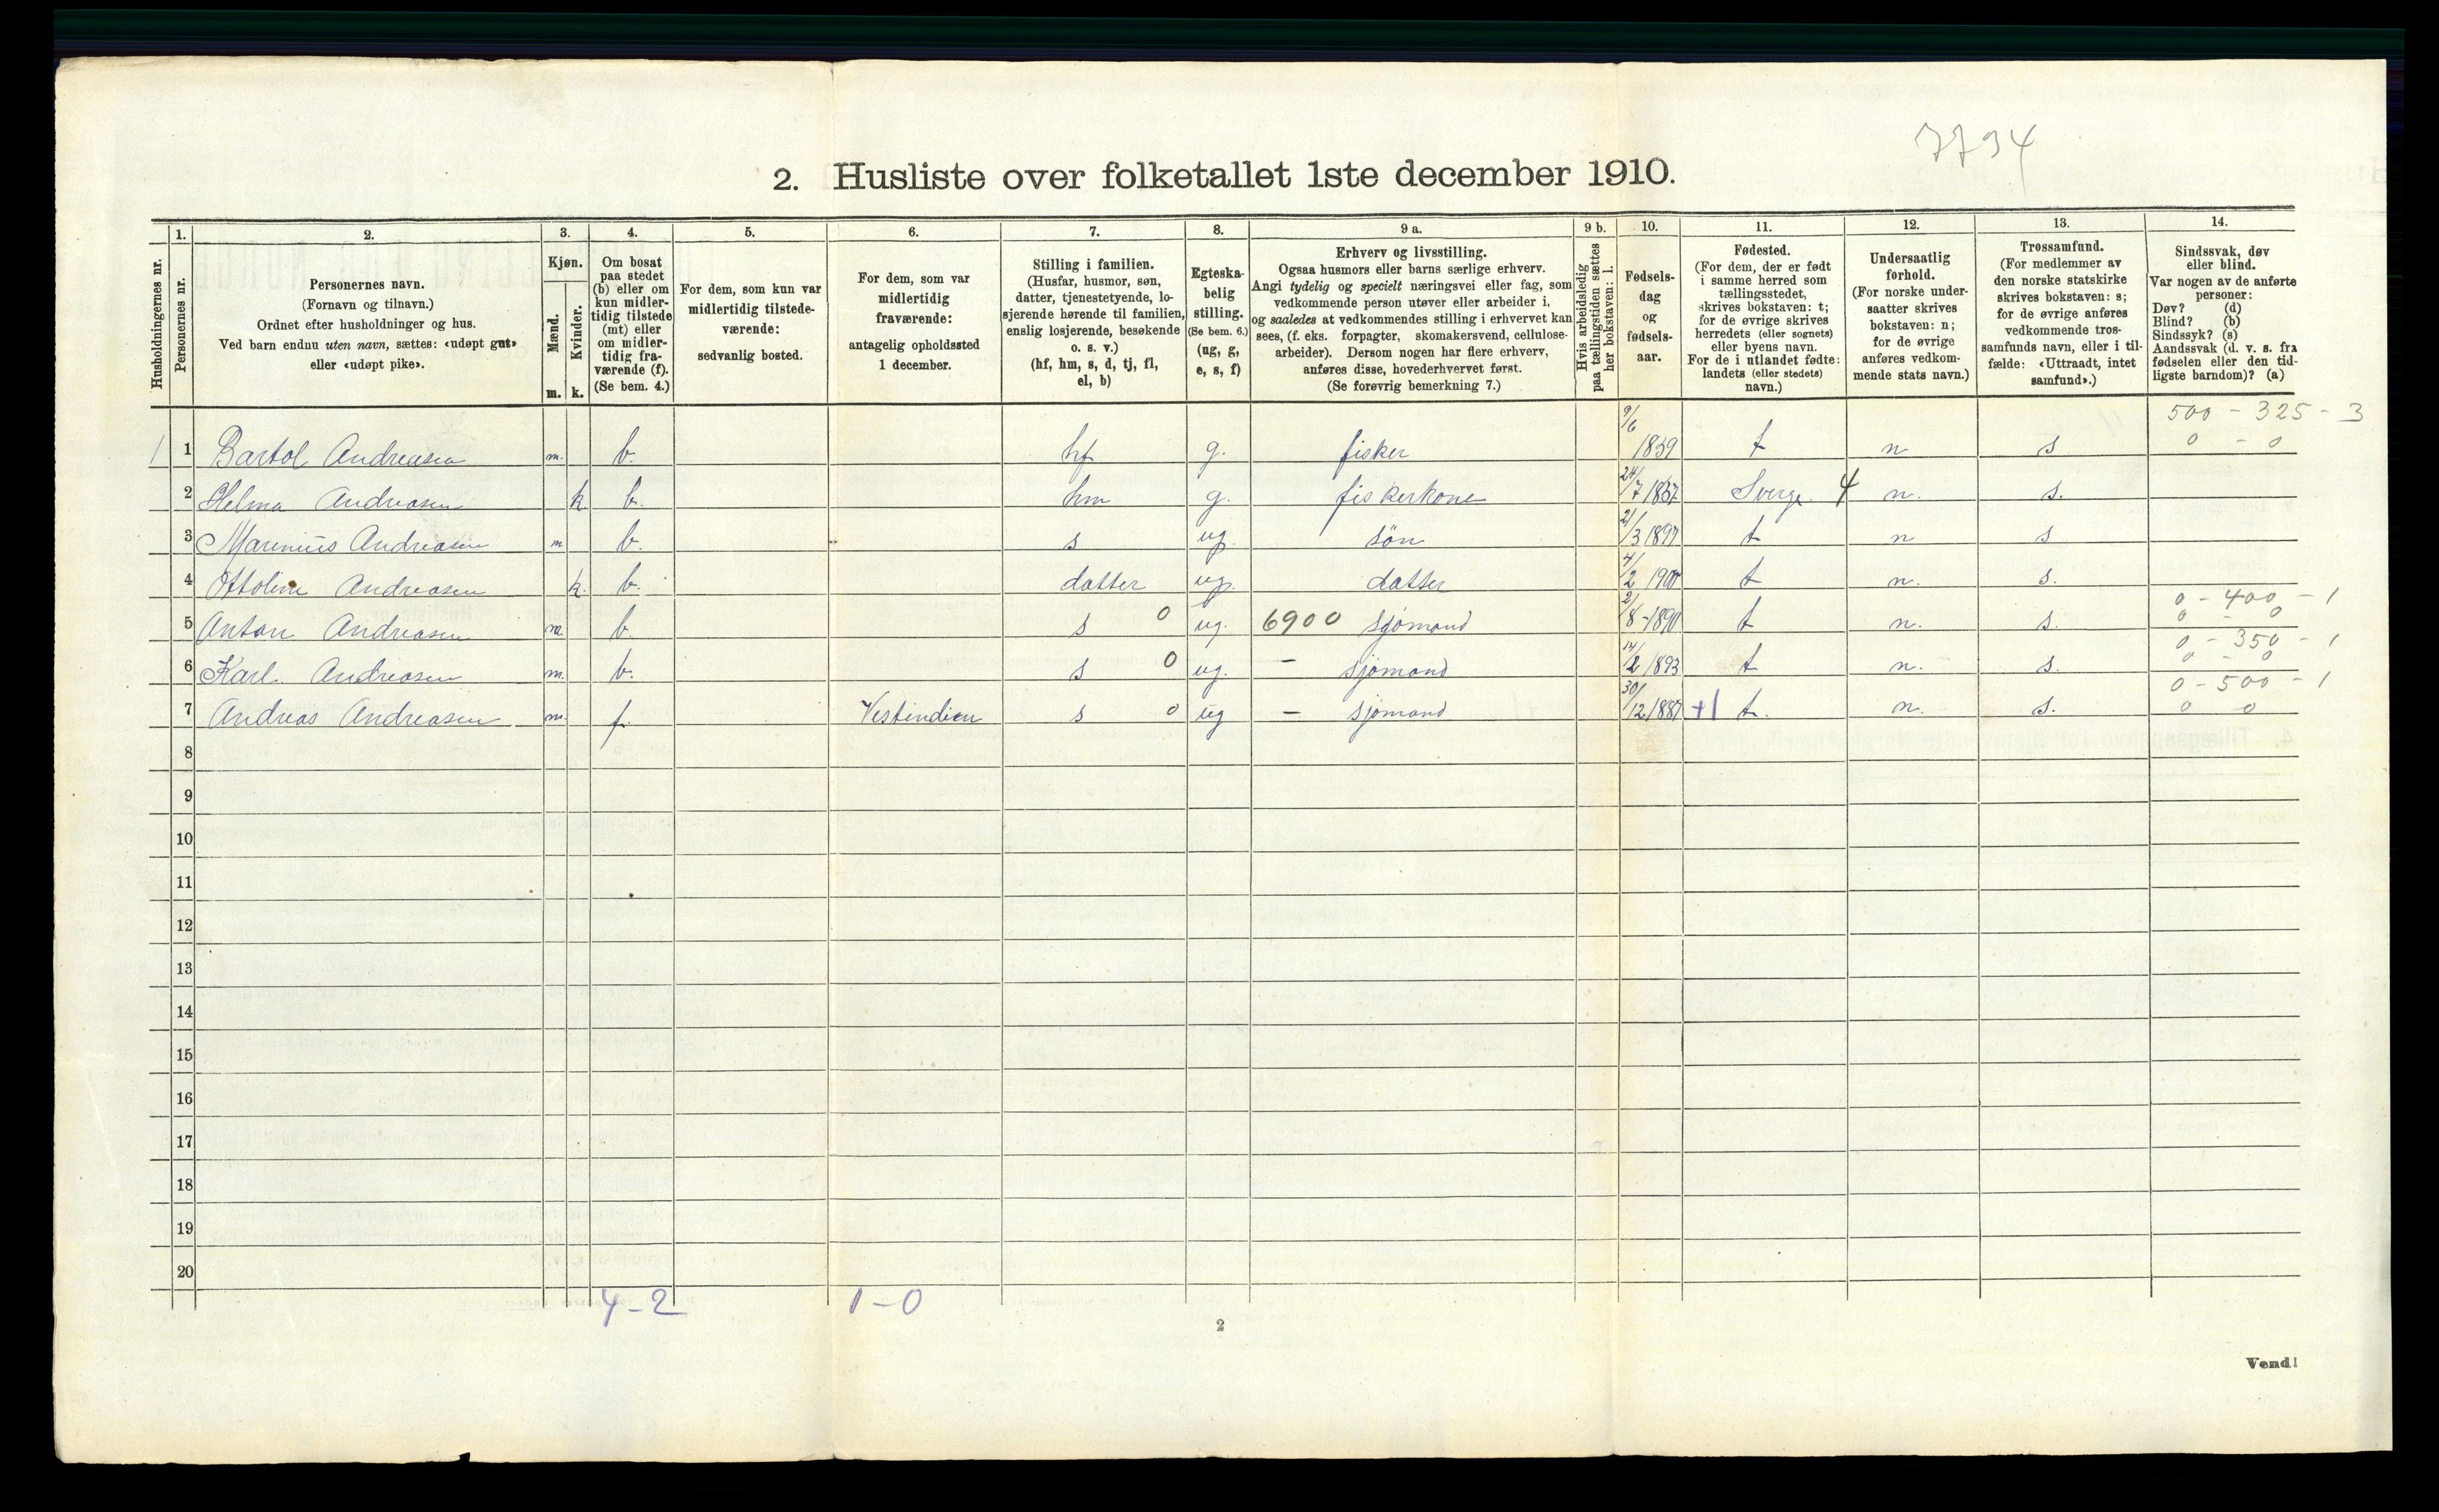 7794
2. Husliste over folketallet 1ste december 1910.
Husholdningernes nr.
1. Personernes nr.
2. Personernes navn.
(Fornavn og tilnavn.)
Ordnet efter husholdninger og hus.
Ved barn endnu uten navn, sættes: «udøpt gut»
eller «udøpt pike».
3. Kjøn.
Mænd. m.
Kvinder. k.
4. Om bosat
paa stedet
(b) eller om
kun midler-
tidig tilstede
(mt) eller
om midler-
tidig fra-
værende (f).
(Se bem. 4.)
5. For dem, som kun var
midlertidig tilstede-
værende:
sedvanlig bosted.
6. For dem, som var
midlertidig
fraværende:
antagelig opholdssted
1 december.
7. Stilling i familien.
(Husfar, husmor, søn,
datter, tjenestetyende, lo-
sjerende hørende til familien,
enslig losjerende, besøkende
o. s. v.)
(hf, hm, s, d, tj, fl,
el, b)
8. Egteska-
belig
stilling.
(Se bem. 6.)
(ug, g,
e, s, f)
9 a. Erhverv og livsstilling.
Ogsaa husmors eller barns særlige erhverv.
Angi tydelig og specielt næringsvei eller fag, som
vedkommende person utøver eller arbeider i,
og saaledes at vedkommendes stilling i erhvervet kan
sees, (f. eks. forpagter, skomakersvend, cellulose-
arbeider). Dersom nogen har flere erhverv,
anføres disse, hovederhvervet først.
(Se forøvrig bemerkning 7.)
9 b. Hvis arbeidsledig
paa tællingstiden sættes
her bokstaven: l.
10. Fødsels-
dag
og
fødsels-
aar.
11. Fødested.
(For dem, der er født
i samme herred som
tællingsstedet,
skrives bokstaven: t;
for de øvrige skrives
herredets (eller sognets)
eller byens navn.
For de i utlandet fødte:
landets (eller stedets)
navn.)
12. Undersaatlig
forhold.
(For norske under-
saatter skrives
bokstaven: n;
for de øvrige
anføres vedkom-
mende stats navn.)
13. Trossamfund.
(For medlemmer av
den norske statskirke
skrives bokstaven: s;
for de øvrige anføres
vedkommende tros-
samfunds navn, eller i til-
fælde: «Uttraadt, intet
samfund».)
14. Sindssvak, døv
eller blind.
Var nogen av de anførte
personer:
Døv? (d)
Blind? (b)
Sindssyk? (s)
Aandssvak (d. v. s. fra
fødselen eller den tid-
ligste barndom)? (a)
500 - 325 - 3
1 1 Bartol Andreasen m. b. hf g. fisker 9/6 1859 t n s 0 - 0
2 Helma Andreasen k b. hm g. fiskerkone 24/7 1857 Sverge. 4 n. s.
3 Marinius Andreasen m b. s ug. søn 21/3 1897 t n s
4 Ottoline Andreasen k. b. datter ug. datter 4/2 1900 t n. s.
0 - 400 - 1
5 Anton Andreasen m. b. s 0 ug. 6900 sjømand 2/8 - 1890 t n. s. 0 - 0
0 - 350 - 1
6 Karl. Andreasen m. b. s 0 ug. - sjømand 14/2 1893 t n. s. 0 - 0
0 - 500 - 1
7 Andreas Andreasen m. f. Vestindien s 0 ug - sjømand 30/12 1887 +1 t. n. s. 0 0
8
9
10
11
12
13
14
15
16
17
18
19
20
4 - 2 1 - 0
2
Vend!